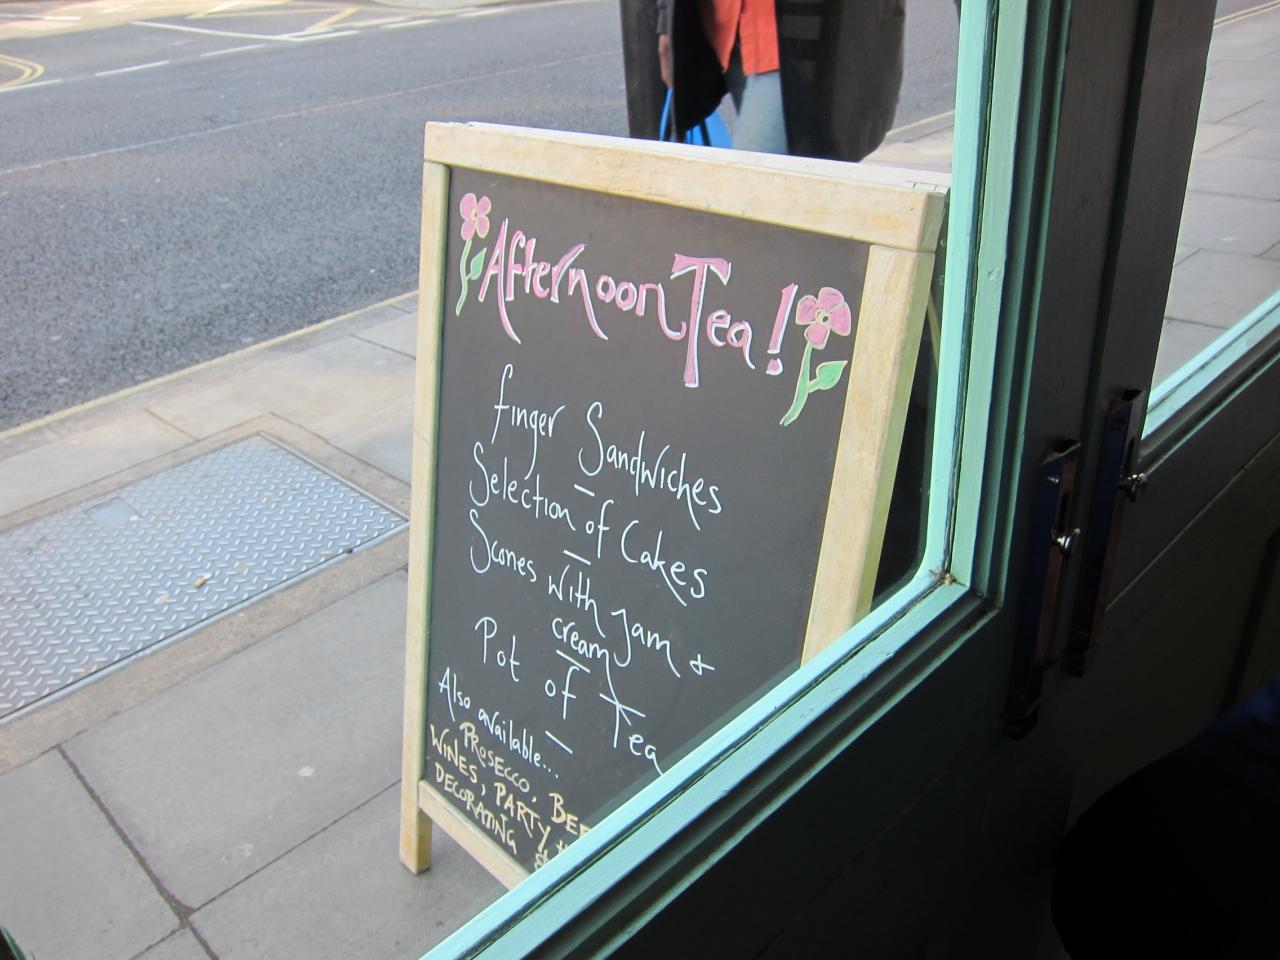 Afternoon Tea!
finger Sandwiches
–
Selection of Cakes
–
Scones with Jam +
cream
–
Pot of Tea
–
Also available...
PROSECCO,
WINES, PARTY
DECORATING &